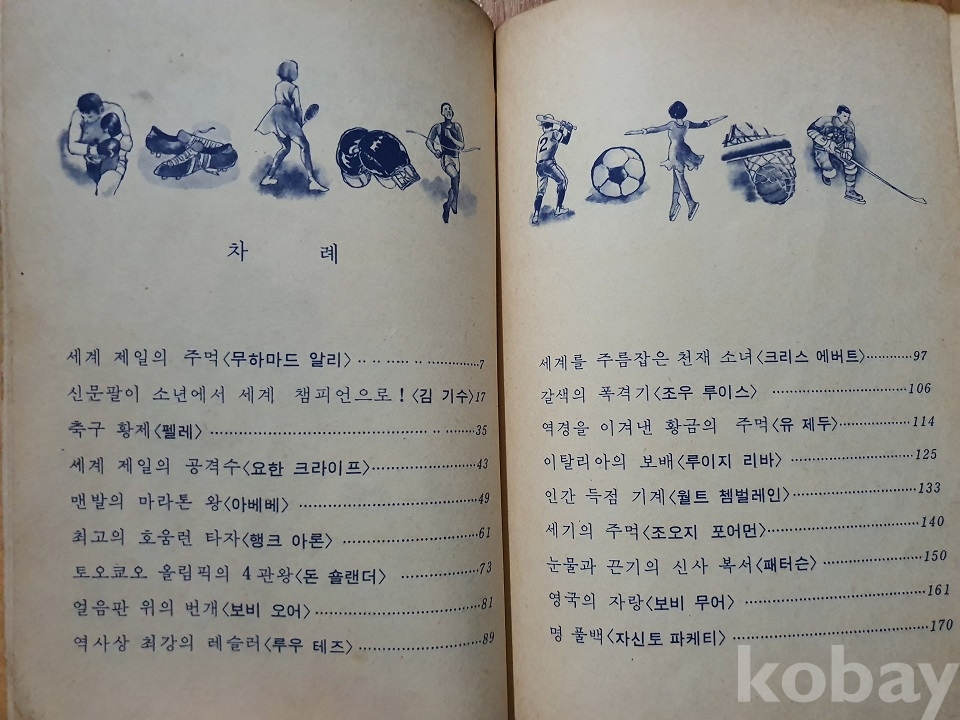 차 례
세계 제일의 주먹〈무하마드 알리〉‥‥‥‥‥‥7
신문팔이 소년에서 세계 챔피언으로!〈김 기수〉17
축구 황제〈펠레〉‥‥‥‥‥‥35
세계 제일의 공격수〈요한 크라이프〉‥‥‥‥‥‥43
맨발의 마라톤 왕〈아베베〉‥‥‥‥‥‥49
최고의 호움런 타자〈행크 아론〉‥‥‥‥‥‥61
토오쿄오 올림픽의 4관왕〈돈 숄랜더〉‥‥‥‥‥‥73
얼음판 위의 번개〈보비 오어〉‥‥‥‥‥‥81
역사상 최강의 레슬러〈루우 테즈〉‥‥‥‥‥‥89
2
세계를 주름잡은 천재 소녀〈크리스 에버트〉‥‥‥‥‥‥97
갈색의 폭격기〈조우 루이스〉‥‥‥‥‥‥106
역경을 이겨낸 황금의 주먹〈유 제두〉‥‥‥‥‥‥114
이탈리아의 보배〈루이지 리바〉‥‥‥‥‥‥125
인간 득점 기계〈월트 쳄벌레인〉‥‥‥‥‥‥133
세기의 주먹〈조오지 포어먼〉‥‥‥‥‥‥140
눈물과 끈기의 신사 복서〈패터슨〉‥‥‥‥‥‥150
영국의 자랑〈보비 무어〉‥‥‥‥‥‥161
명 풀백〈자신토 파케티〉‥‥‥‥‥‥170
kobay